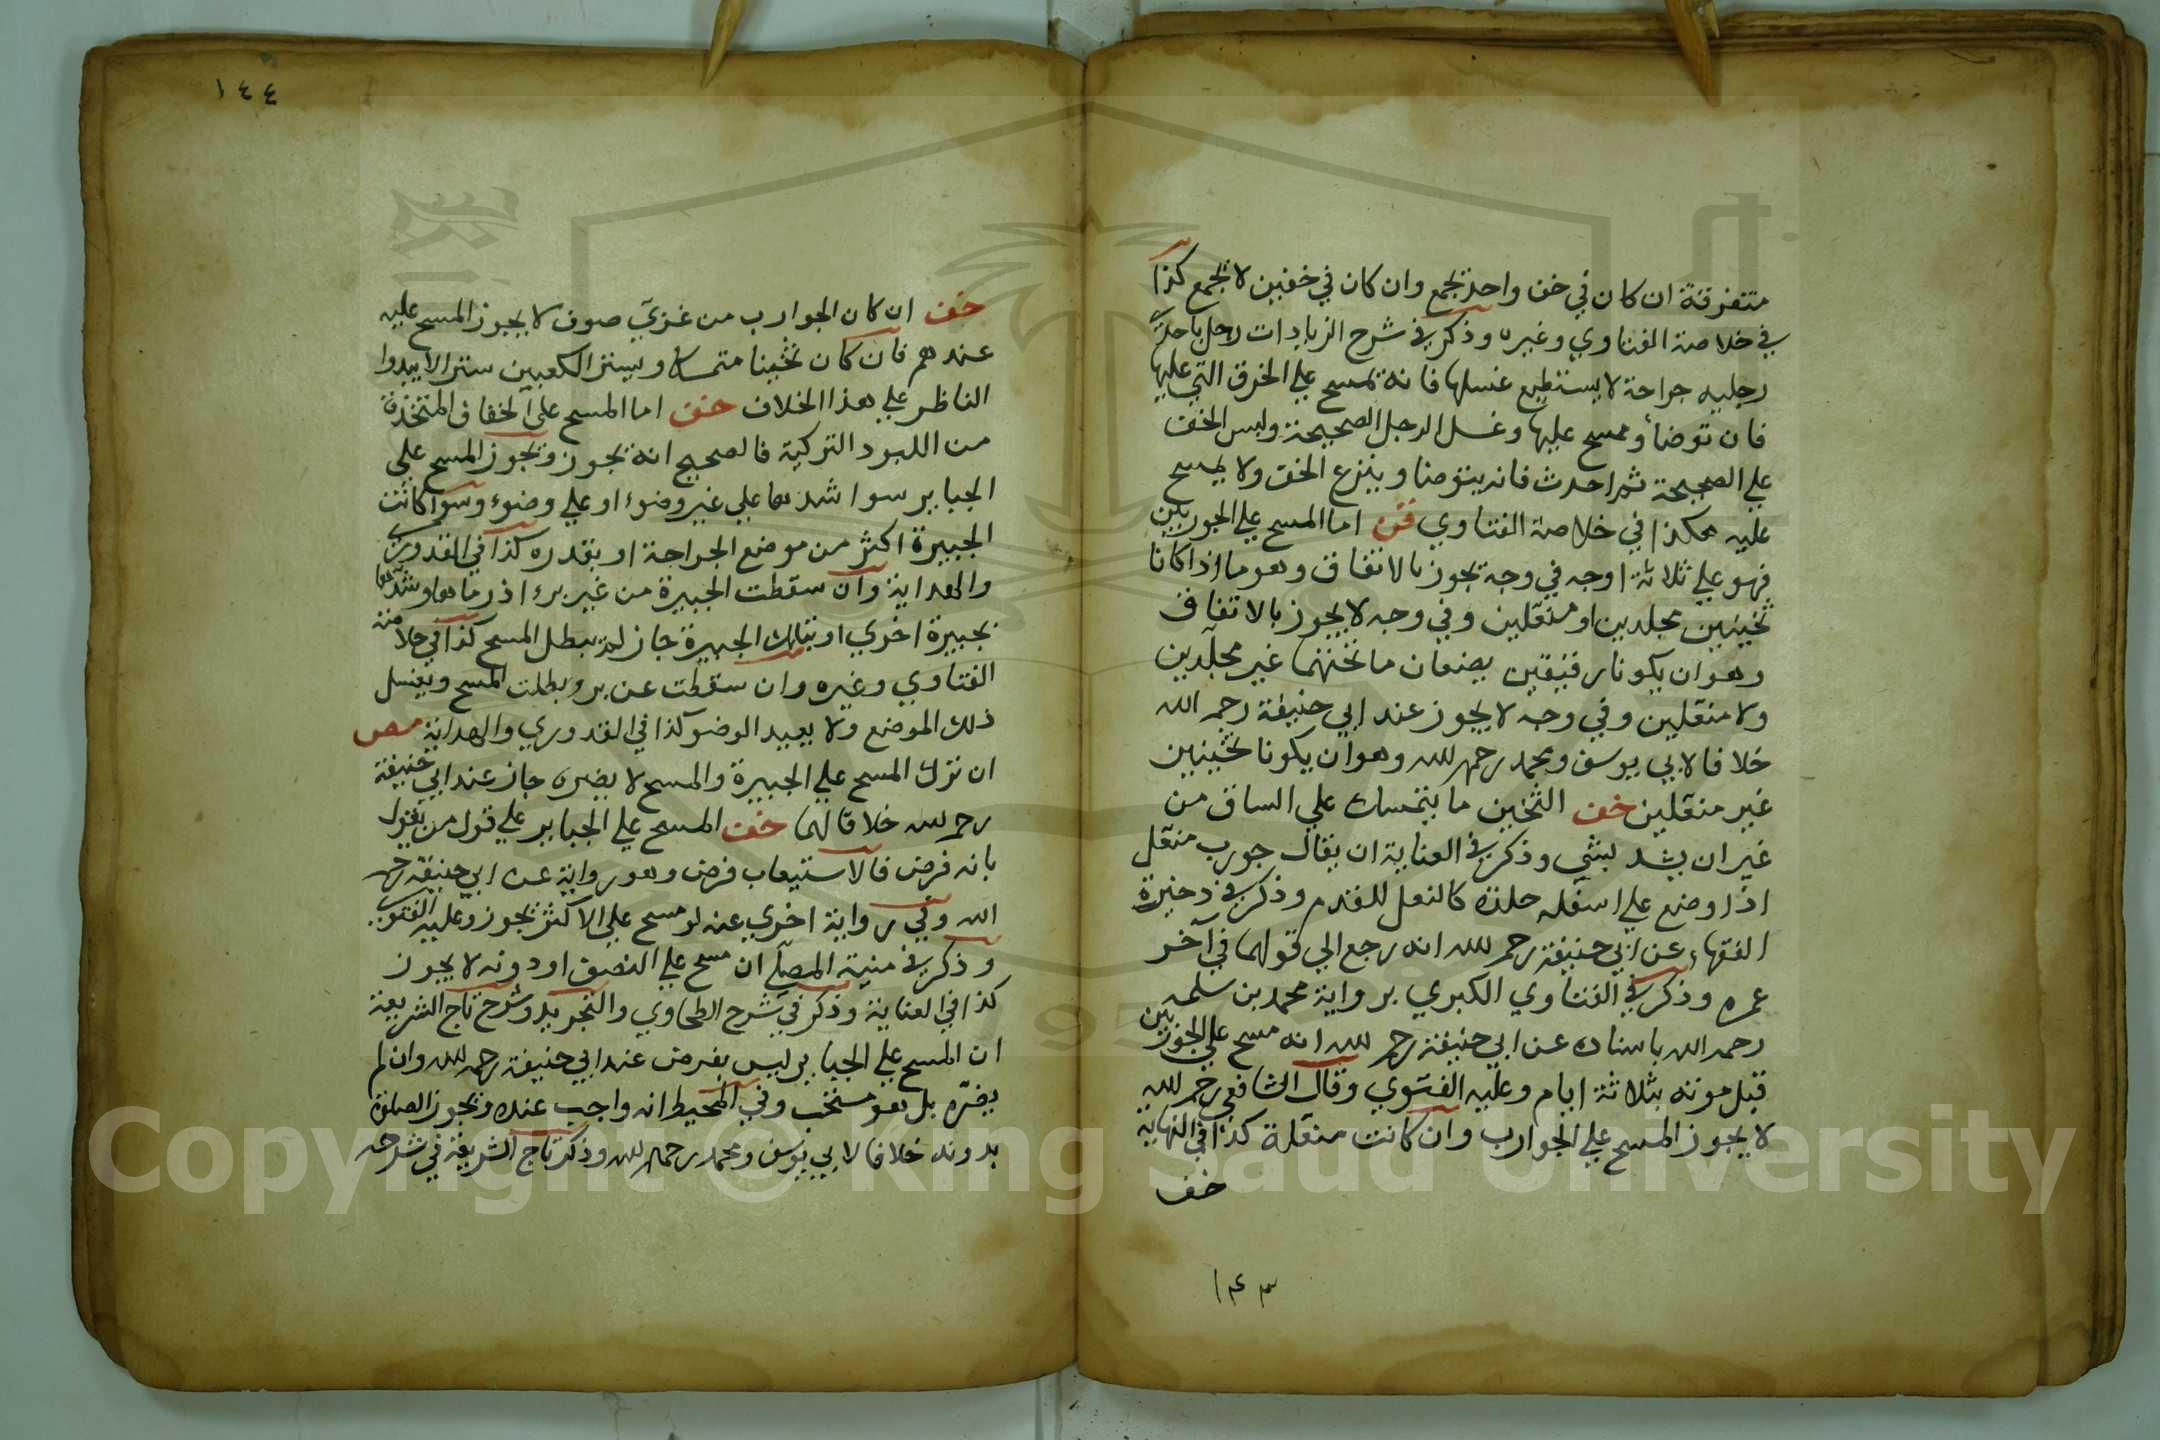 متفرقة ان كان في خف واحد تجمع وان كان في خفين لا تجمع كذا
في خلاصة الفتاوي وغيره وذكر في شرح الزيادات رجل باحدي
رجليه جراحة لا يستطيع غسلها فانه يمسح علي الخرق التي عليها
فان توضأ ومسح عليها وغسل الرجل الصحيحة ولبس الخف
علي الصحيحة ثم احدث فانه يتوضا وينزع الخف ولا يمسح
عليه هكذا في خلاصة الفتاوي اما المسح علي الجوربين
فهو علي ثلاثة اوجه في وجه يجوز بالاتفاق وهو ما اذا كانا
ثخينين مجلدين او منعلين وفي وجه لا يجوز بالاتفاق
وهو ان يكونا رقيقين غير مجلدين
ولا منعلين وفي وجه لا يجوز عند ابي حنيفة رحمه الله
خلافا لابي يوسف ومحمد رحمهم الله وهو ان يكونا ثخينين
غير منعلين خف الثخين ما يتمسك علي الساق من
غير ان يشد بشي وذكر في العناية ان يقال جورب منعل
اذا وضع علي اسفله جلدة كالنعل للقدم وذكر في ذخيرة
الفقهاء عن ابي حنيفة رحمه الله انه رجع الي قولهما في آخر
عمره وذكر في الفتاوي الكبري برواية محمد بن سلمه
رحمه الله باسناده عن ابي حنيفة رحمه الله انه مسح علي الجوربين
قبل موته بثلاثة ايام وعليه الفتوي وقال الشافعي رحمه الله
لا يجوز المسح علي الجوارب وان كانت منعلة كذا في النهاية
خف
١٤٣
١٤٤
خف ان كان الجوارب من غزل صوف لا يجوز المسح عليه
عندهم فان كان ثخينا متمسكا ويستر الكعبين سترا لا يبدوا
الناظر علي هذا الخلاف خف اما المسح علي الخفاف المتخذة
من اللبود التركية فالصحيح انه يجوز ويجوز المسح علي
الجباير سوا شدها علي غير وضوء او علي وضوء وسوا كانت
الجبيرة اكثر من موضع الجراحة او بقدره كذا في القدوري
والهداية وان سقطت الجبيرة من غير برء اذ رماها وشدها
بجبيرة اخري او بتلك الجبيرة جاز لم يبطل المسح كذا في خلاصة
الفتاوي وغيره وان سقطت عن برء بطلت المسح ويغسل
ذلك الموضع ولا يعيد الوضو كذا في القدوري والهداية مص
ان ترك المسح علي الجبيرة والمسح لا يضره جاز عند ابي حنيفة
رحمه الله خلافا لهما خف المسح علي الجباير علي قول من يقول
بانه فرض فالاستيعاب فرض وهو رواية عن ابي حنيفة رحمه
الله وفي رواية اخري عنه لو مسح علي الاكثر يجوز وعليه الفتوي
وذكر في منية المصلي ان مسح علي النصف او دونه لا يجوز
كذا في العناية وذكر في شرح الطحاوي والتجريد وشرح تاج الشريعة
ان المسح علي الجباير ليس بفرض عند ابي حنيفة رحمه الله وان لم
يضره بل هو مستحب وفي المحيط انه واجب عنده ويجوز الصلوة
بدونه خلافا لابي يوسف ومحمد رحمهم الله وذكر تاج الشريعة في شرحه
Copyright © King Saud University